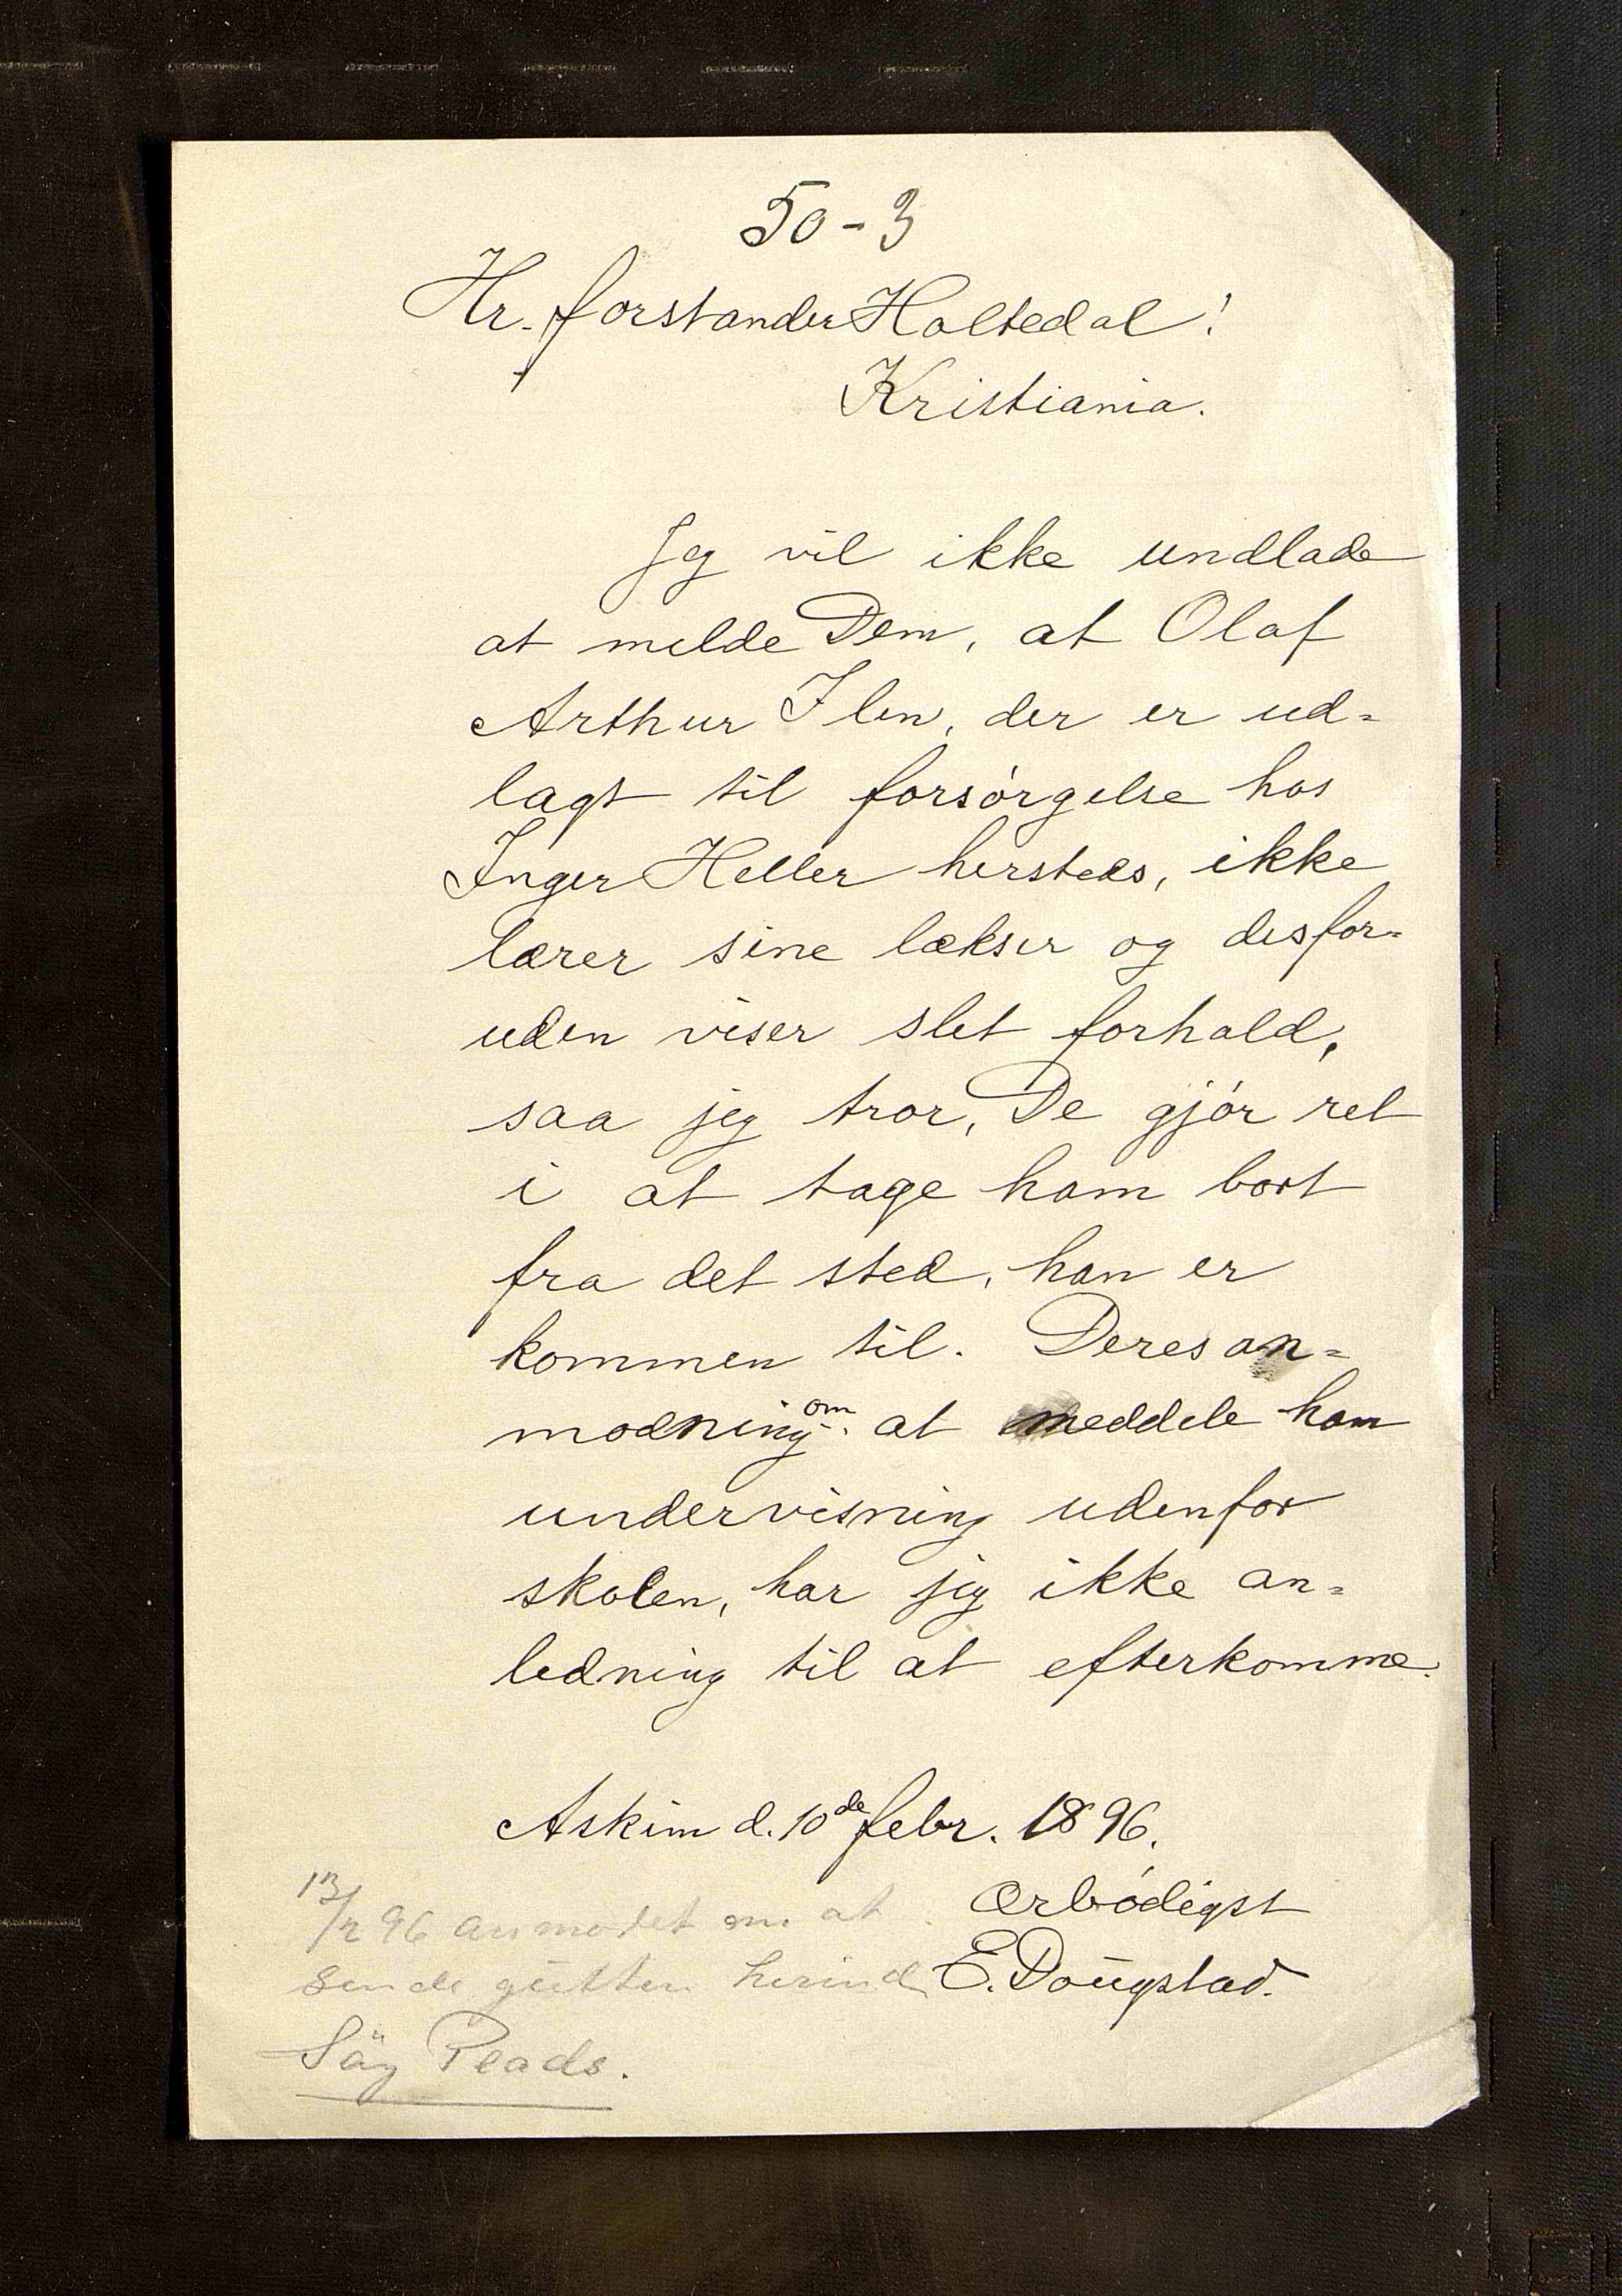 50-3
Hr. forstander Holtedal!
Kristiania.
Jeg vil ikke undlade
at melde Dem, at Olaf
Arthur Ilen, der er ud=
lagt til forsórgelse hos
Inger Heller hersteds, ikke
lærer sine lækser og desfor=
uden viser slet forhold,
saa jeg tror, De gjór ret
i at tage ham bort
fra det sted, han er
kommen til. Deres an=
modning om at meddele ham
undervisning udenfor
skolen, har jeg ikke an=
ledning til at efterkomme.
Askim d. 10de febr. 1896.
Ærbódigst
E. Dougstad.
13/2 96 anmodet om at
sende gutten herind
Plads.